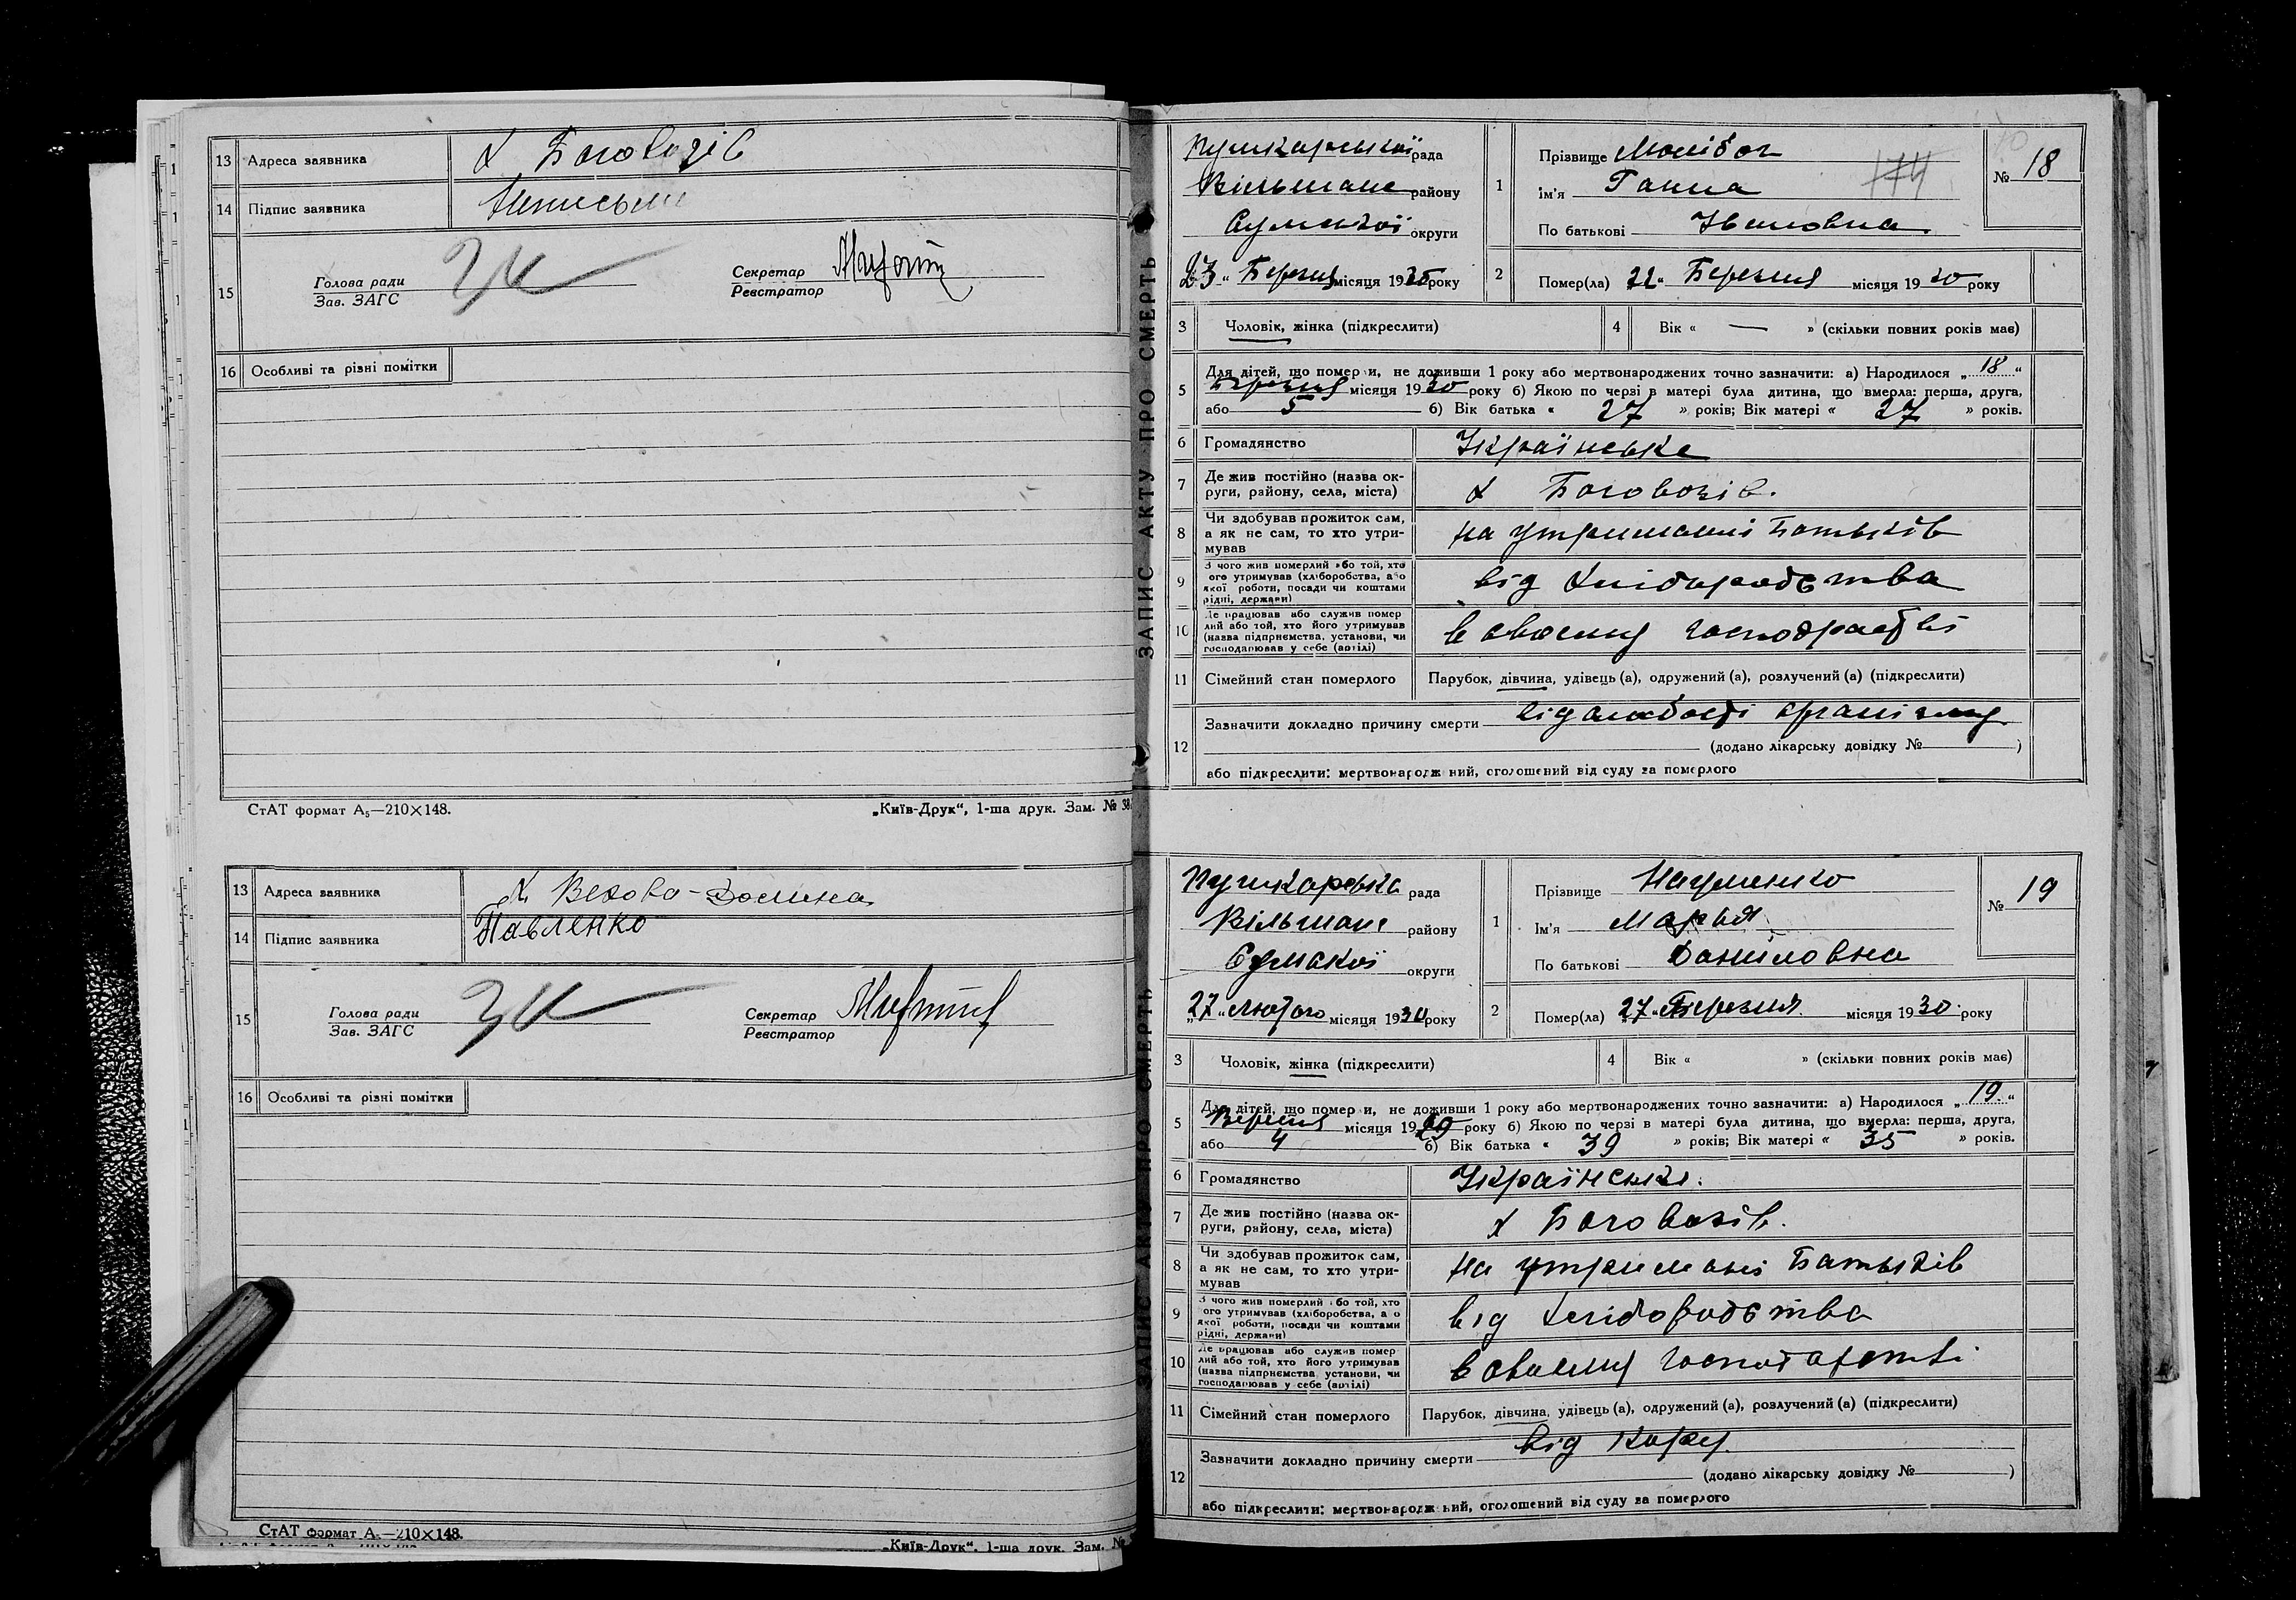 13 Адреса заявника х Боговозів
14 Підпис заявника
15 Голова ради
Зав. ЗАГС
Секретар
Реєстратор
16 Особливі та різні помітки
СтАТ формат А₅—210×148. „Київ-Друк“, 1-ша друк. Зам. № 38
13 Адреса заявника х. Вехова-Долина
14 Підпис заявника Павленко
15 Голова ради
Зав. ЗАГС
Секретар
Реєстратор
16 Особливі та різні помітки
СтАТ формат А₅—210×148.
„Київ-Друк“, 1-ша друк. Зам. №
ЗАПИС АКТУ ПРО СМЕРТЬ
Пушкарської рада
Вільшане району
Сумської округи
23 „ Березня місяця 1930 року
1 Прізвище
174
Ім'я Ганна
По батькові Івановна
№ 18
2 Помер(ла) 22 „ Березня місяця 1930 року
3 Чоловік, жінка (підкреслити)
4 Вік « — » (скільки повних років має)
5 Для дітей, що померли, не доживши 1 року або мертвонароджених точно зазначити: а) Народилося „ 18 “
Березня місяця 1930 року б) Якою по черзі в матері була дитина, що вмерла: перша, друга,
або 5 б) Вік батька « 27 » років; Вік матері « 27 » років.
6 Громадянство Українське
7 Де жив постійно (назва ок-
руги, району, села, міста) х Боговозів.
8 Чи здобував прожиток сам,
а як не сам, то хто утри-
мував на утриманні Батьків
9 З чого жив померлий або той, хто
його утримував (хліборобства, або
якої роботи, посади чи коштами
рідні, держави) від хліборобства
10 Де працював або служив помер
лий або той, хто його утримував
(назва підприємства, установи, чи
господарював у себе (артілі) в своєму господрастві
11 Сімейний стан померлого Парубок, дівчина, удівець (а), одружений (а), розлучений (а) (підкреслити)
12 Зазначити докладно причину смерти від слабості організму
(додано лікарську довідку № )
або підкреслити: мертвонароджений, оголошений від суду за померлого
ЗАПИС АКТУ ПРО СМЕРТЬ
Пушкарська рада
Вільшане району
Сумської округи
„27 „ Лютого місяця 1930 року
1 Прізвище Науменко
Ім'я Марья
По батькові Даниловна
№ 19
2 Помер(ла) 27 „ Березня. місяця 1930 року
3 Чоловік, жінка (підкреслити)
4 Вік « » (скільки повних років має)
5 Для дітей, що померли, не доживши 1 року або мертвонароджених точно зазначити: а) Народилося „ 19. “
місяця 1929 року б) Якою по черзі в матері була дитина, що вмерла: перша, друга,
або 4 б) Вік батька « 39 » років; Вік матері « 35 » років.
6 Громадянство Українське.
7 Де жив постійно (назва ок-
руги, району, села, міста) х Боговозів.
8 Чи здобував прожиток сам,
а як не сам, то хто утри-
мував на утримані Батьків
9 З чого жив померлий або той, хто
його утримував (хліборобства, або
якої роботи, посади чи коштами
рідні, держави) від хліборобства
10 Де працював або служив помер
лий або той, хто його утримував
(назва підприємства, установи, чи
господарював у себе (артілі) в своєму господарстві
11 Сімейний стан померлого Парубок, дівчина, удівець (а), одружений (а), розлучений (а) (підкреслити)
12 Зазначити докладно причину смерти від Кору.
(додано лікарську довідку № )
або підкреслити: мертвонароджений, оголошений від суду за померлого